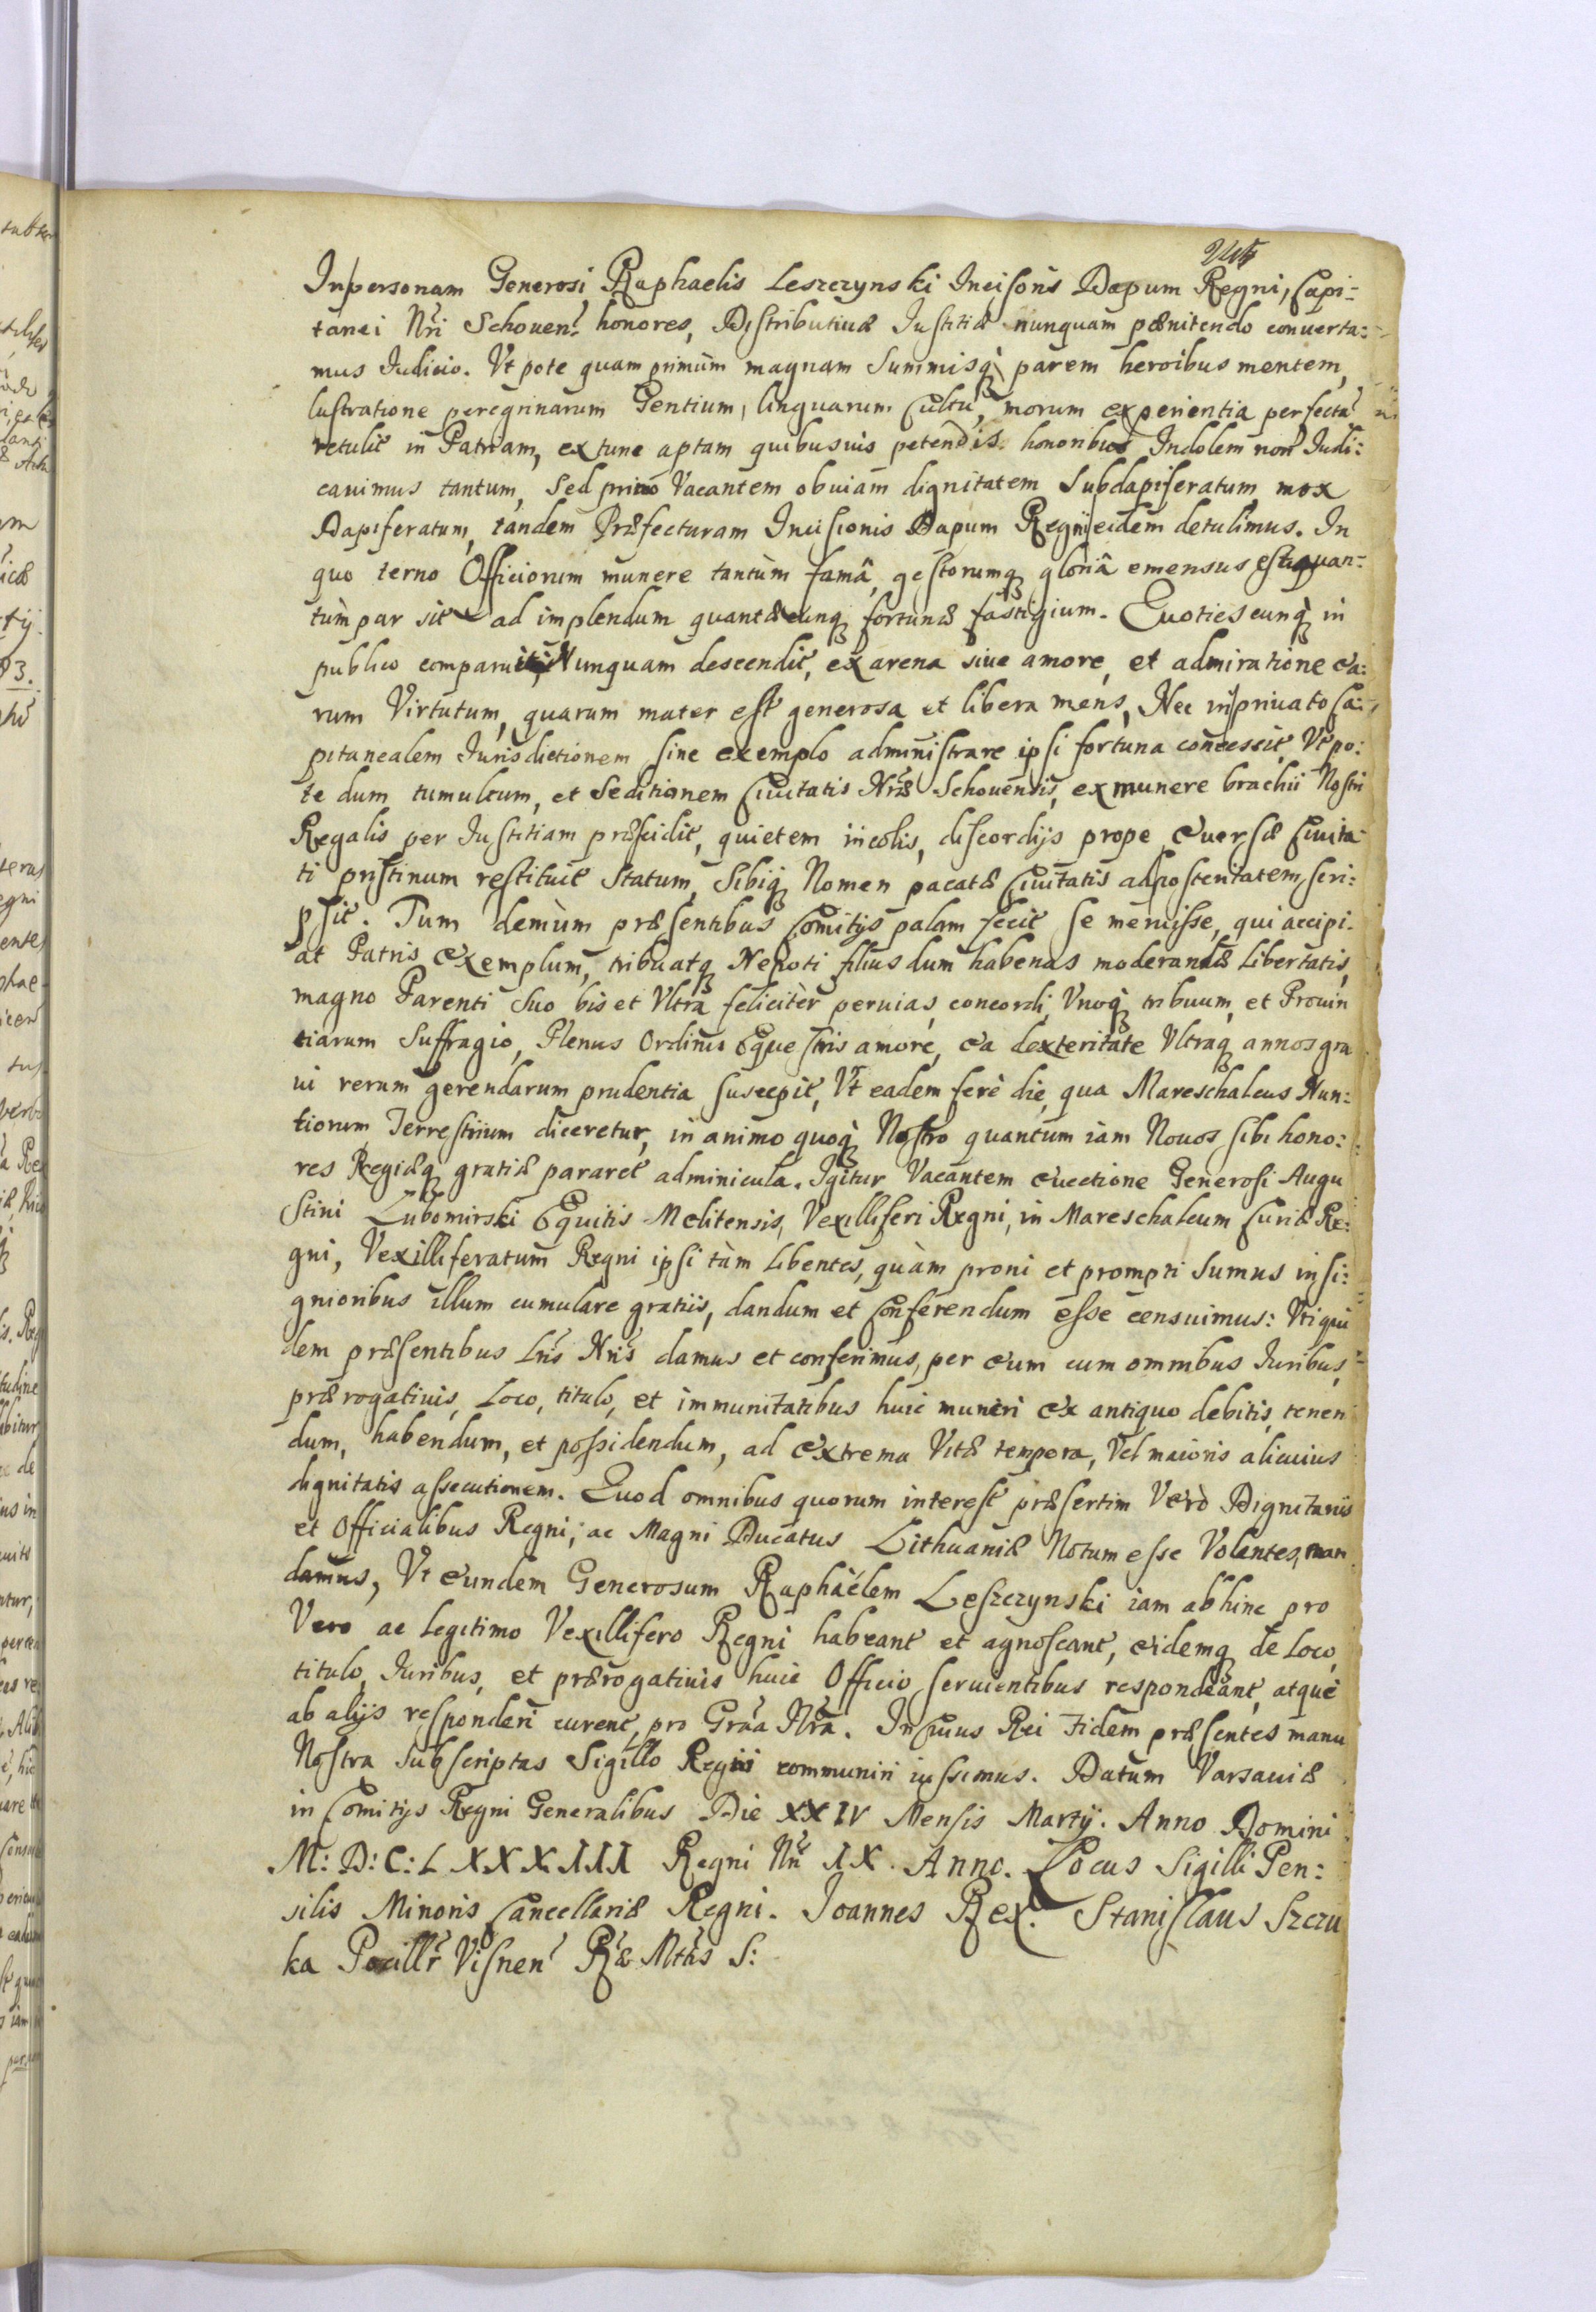 Inpersonam Generosi Raphaelis Leszczynski Incisoris Dapum Regni, Capi:
tanei Nri Schouen: honores, Distributiuæ Iustitiæ nunquam pænitendo conuerta:
mus Iudicio. Vt pote quam primùm magnam Summisq; parem heroibus mentem,
lustratione peregrinarum Gentium, linguarum Cultu, morum experientia perfectā
retulit in Patriam, extunc aptam quibusuis petendis honoribus Indolem non Iudi:
cauimus tantum, Sed primo Vacantem obuiam dignitatem Subdapiferatum mox
Dapiferatum, tandem Præfecturam Incisionis Dapum Regni eidem detulimus. In
quo terno Officiorum munere tantùm famâ, gestorumq; gloriâ emensus est, quan:
tùm par sit ad implendum quantæcunq; fortunæ fastigium. Quotiescunq; in
publico comparuit, Nunquam descendit, ex arena siue amore, et admiratione ea:
rum Virtutum, quarum mater est generosa et libera mens, Nec in priuato Ca:
pitanealem Iurisdictionem sine exemplo administrare ipsi fortuna concessit, Vtpo:
te dum tumultum, et Seditionem Ciuitatis Nræ Schouensis, ex munere brachii Nostri
Regalis per Iustitiam præscidit, quietem incolis, discordijs prope euersæ Ciuita:
ti pristinum restituit Statum, Sibiq; Nomen pacatæ Ciuitatis ad posteritatem, scri:
psit. Tum demùm præsentibus Comitijs palam fecit se meruisse, qui accipi:
at Patris Exemplum, tribuatq; Nepoti filius dum habenas moderandæ Libertatis,
magno Parenti Suo bis et Vltrà felicitèr peruias, concordi, Vnoq; tribuum, et Prouin
tiarum Suffragio, Plenus Ordinis Equestris amore, ea dexteritate Vltraq; annos gra
ui rerum gerendarum prudentia suscepit, Vt eadem ferè die, qua Mareschalcus Nun:
tiorum Terrestrium diceretur, in animo quoq; Nostro quantum iam Nouos sibi hono:
res Regiæq; gratiæ pararet adminicula. Igitur Vacantem euectione Generosi Augu
stini Lubomirski Equitis Melitensis, Vexilliferi Regni, in Mareschalcum Curiæ Re:
gni, Vexilliferatum Regni ipsi tàm libentes, quàm proni et prompti Sumus insi:
gnioribus illum cumulare gratiis, dandum et Conferendum esse censuimus: Vti qui
dem præsentibus Lris Nris damus et conferimus, per eum cum omnibus Iuribus,
prærogatiuis, Loco, titulo, et immunitatibus huic muneri ex antiquo debitis, tenen
dum, habendum, et possidendum, ad extrema Vitæ tempora, Vel maioris alicuius
dignitatis assecutionem. Quod omnibus quorum interest præsertim Verò Dignitariis
et Officialibus Regni, ac Magni Ducatus Lithuaniæ Notum esse Volentes, man
damus, Vt eundem Generosum Raphaélem Leszczynski iam abhinc pro
Vero ac Legitimo Vexillifero Regni habeant et agnoscant, eidemq; de Loco,
titulo, Iuribus, et prærogatiuis huic Officio seruientibus respondeant, atque
ab alijs responderi curent, pro Gra͠a Nra͠. In Cuius Rei Fidem præsentes manu
Nostra Subscriptas Sigillo Regni communiri iussimus. Datum Varsauiæ
in Comitijs Regni Generalibus Die XXIV Mensis Martij. Anno Domini
M: D: C: L XXXIII Regni Nri IX. Anno. Locus Sigilli Pen:
silis Minoris Cancellariæ Regni. Joannes Rex. Stanislaus Szczu
ka Pocillr Visnen Ræ Mttis S: